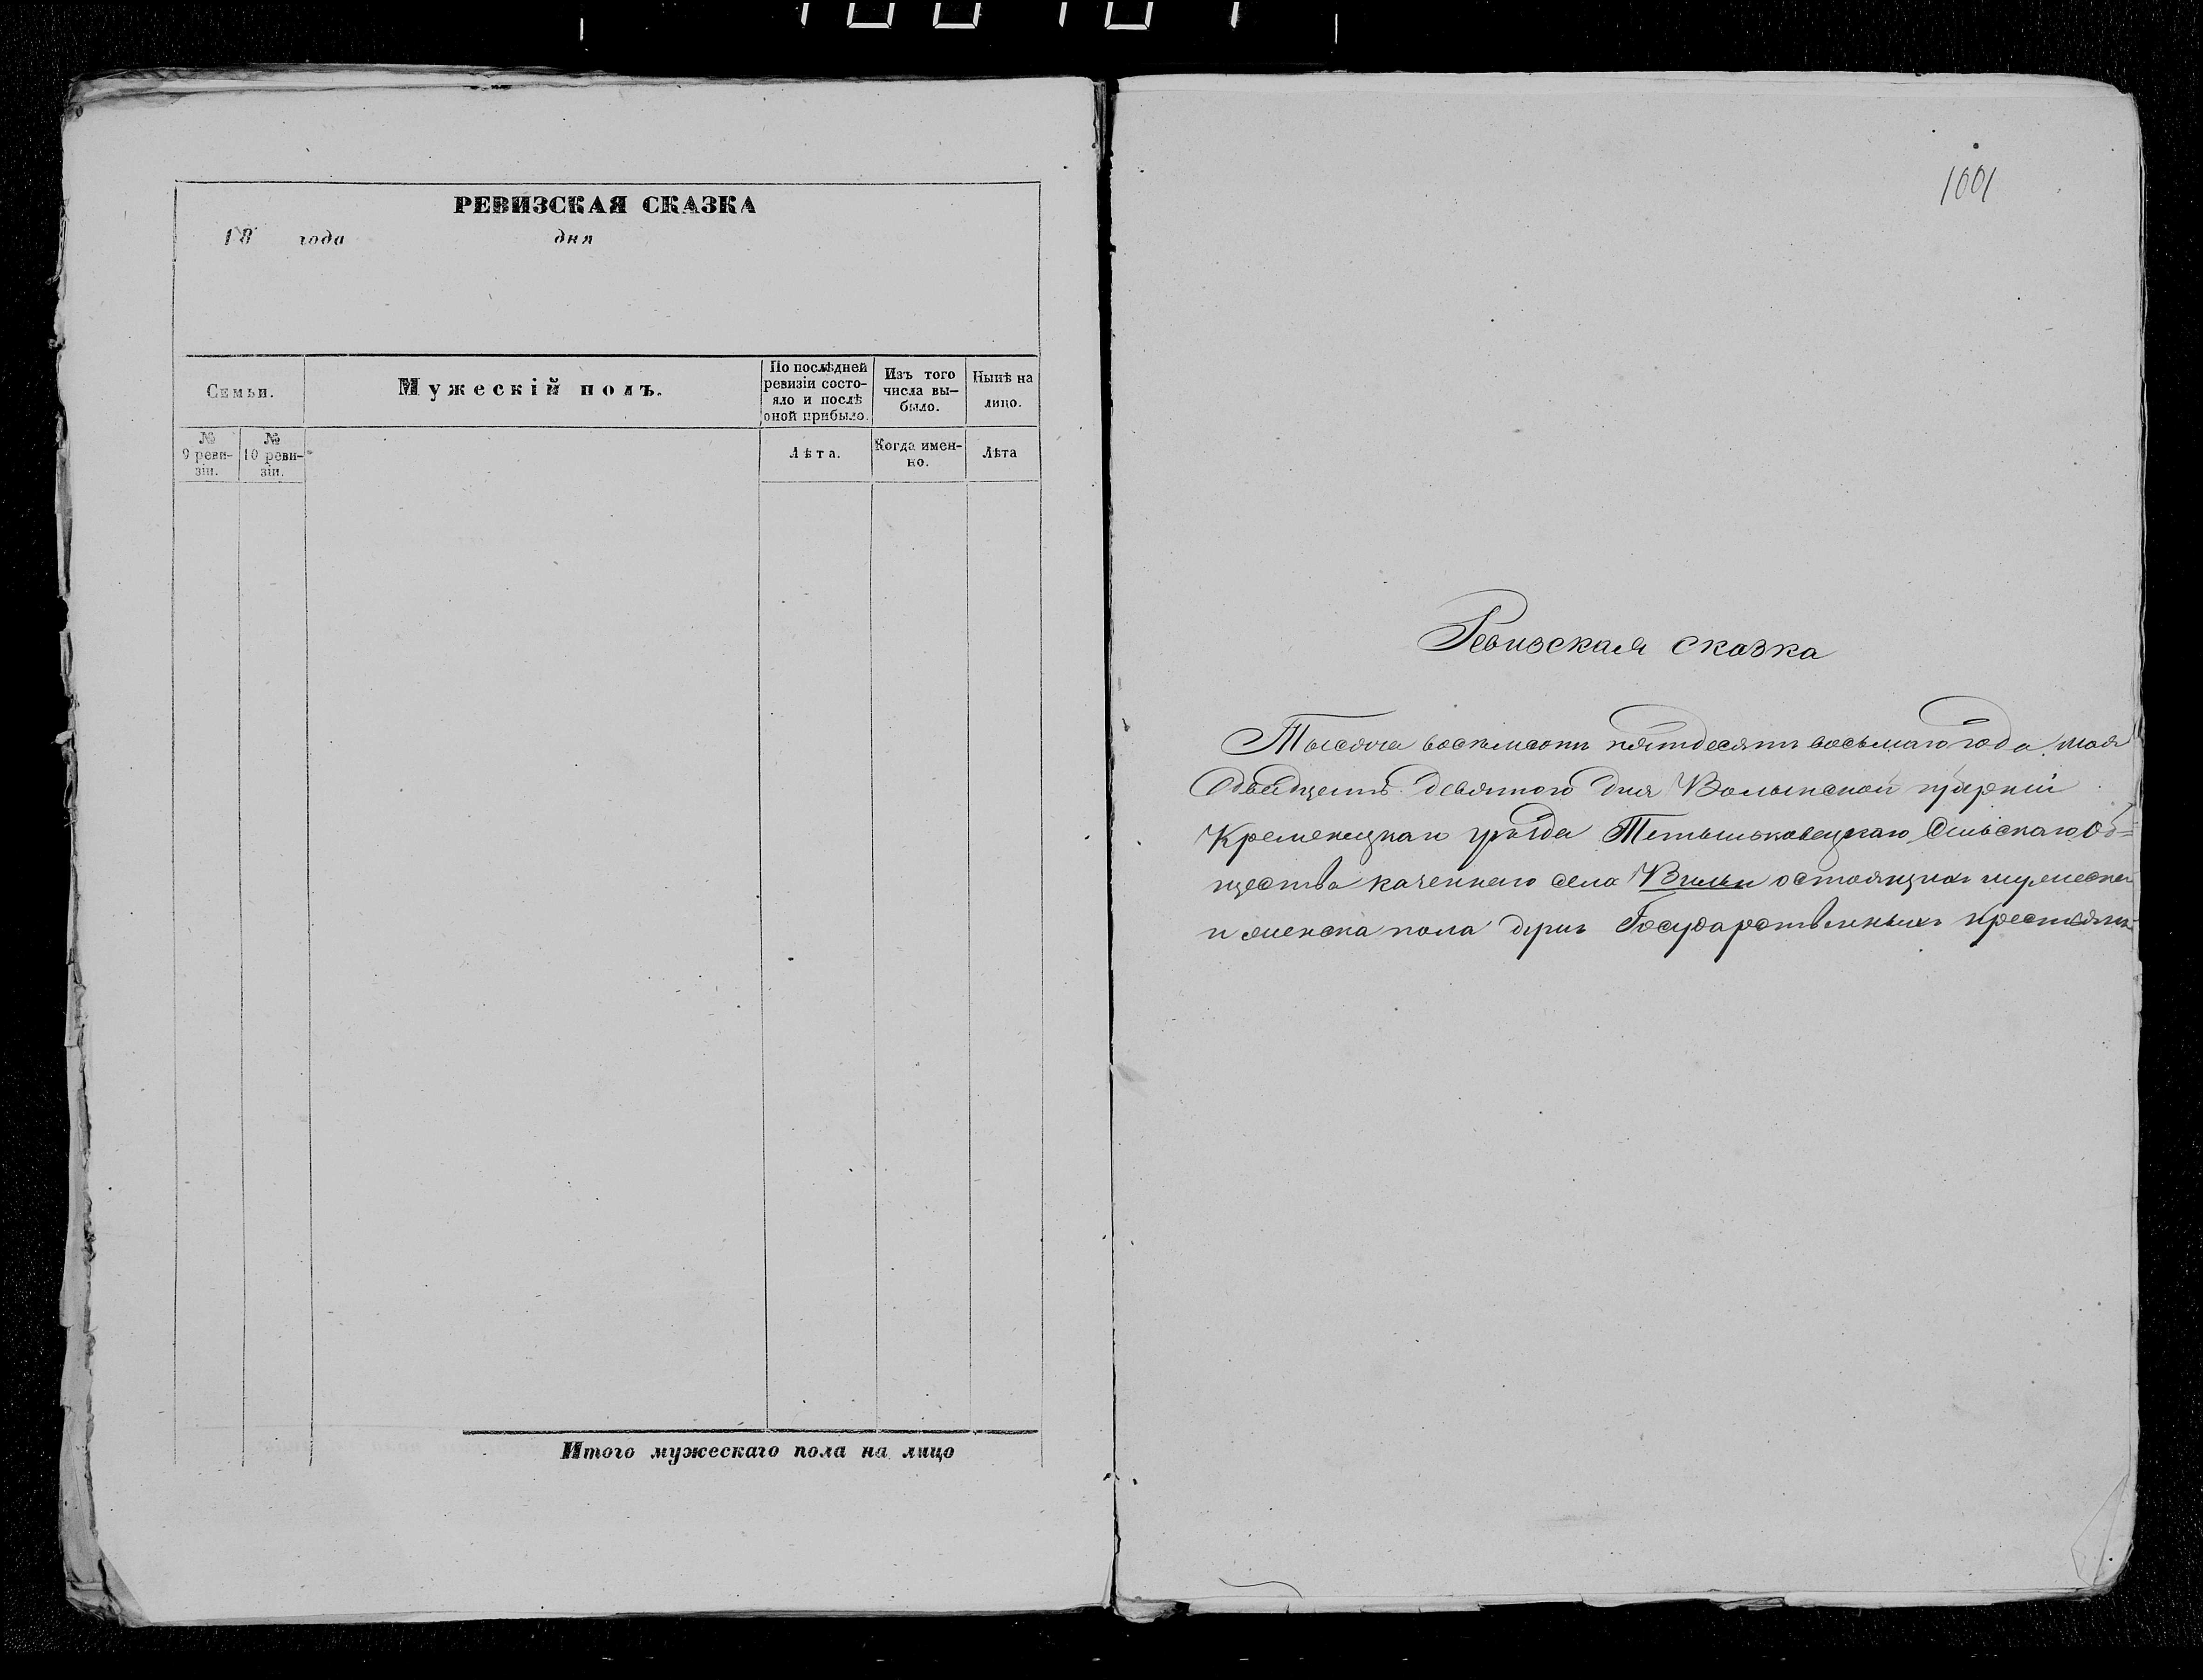 РЕВИЗСКАЯ СКАЗКА
18 года дня
Семьи.
Мужескій полъ.
По послѣдней ревизіи состо-яло и послѣ оной прибыло.
Изъ того числа вы-было.
Нынѣ на лицо.
№ 9 реви-зіи.
№ 10 реви-зіи.
Лѣта.
Когда имен-но.
Лѣта
Итого мужескаго пола на лицо
1001
Ревизская сказка
Тысяча восемьсотъ пятдесятъ восьмаго года мая
двадцать девятого дня Волынской губерніи
Кременецкаго уѣзда Тетыльковецкаго Сельскаго Об=
щества казеннаго села Вильи остоящихъ мужеска
и женска пола душъ Государственныхъ крестьянъ